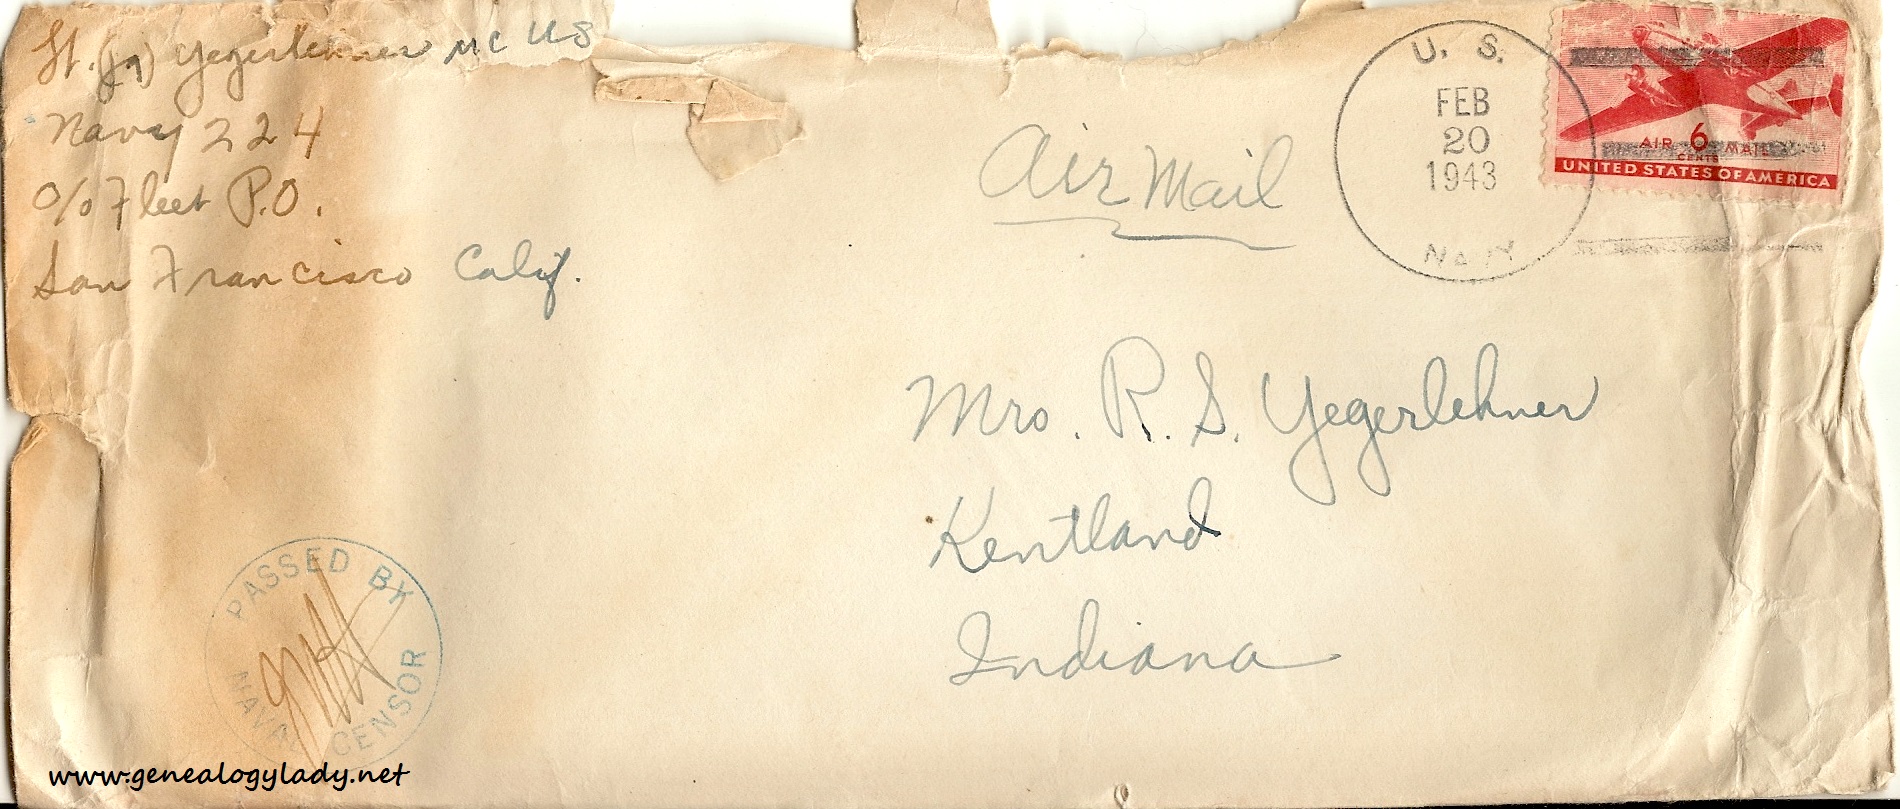 Lt. (jg) Yegerlehner MC US
Navy 224
c/o Fleet P.O.
San Francisco Calif.
Air Mail
U. S.
FEB
20
1943
NAVY
AIR 6 MAIL
CENTS
UNITED STATES OF AMERICA
Mrs. R. S. Yegerlehner
Kentland
Indiana
PASSED BY
NAVAL CENSOR
www.genealogylady.net